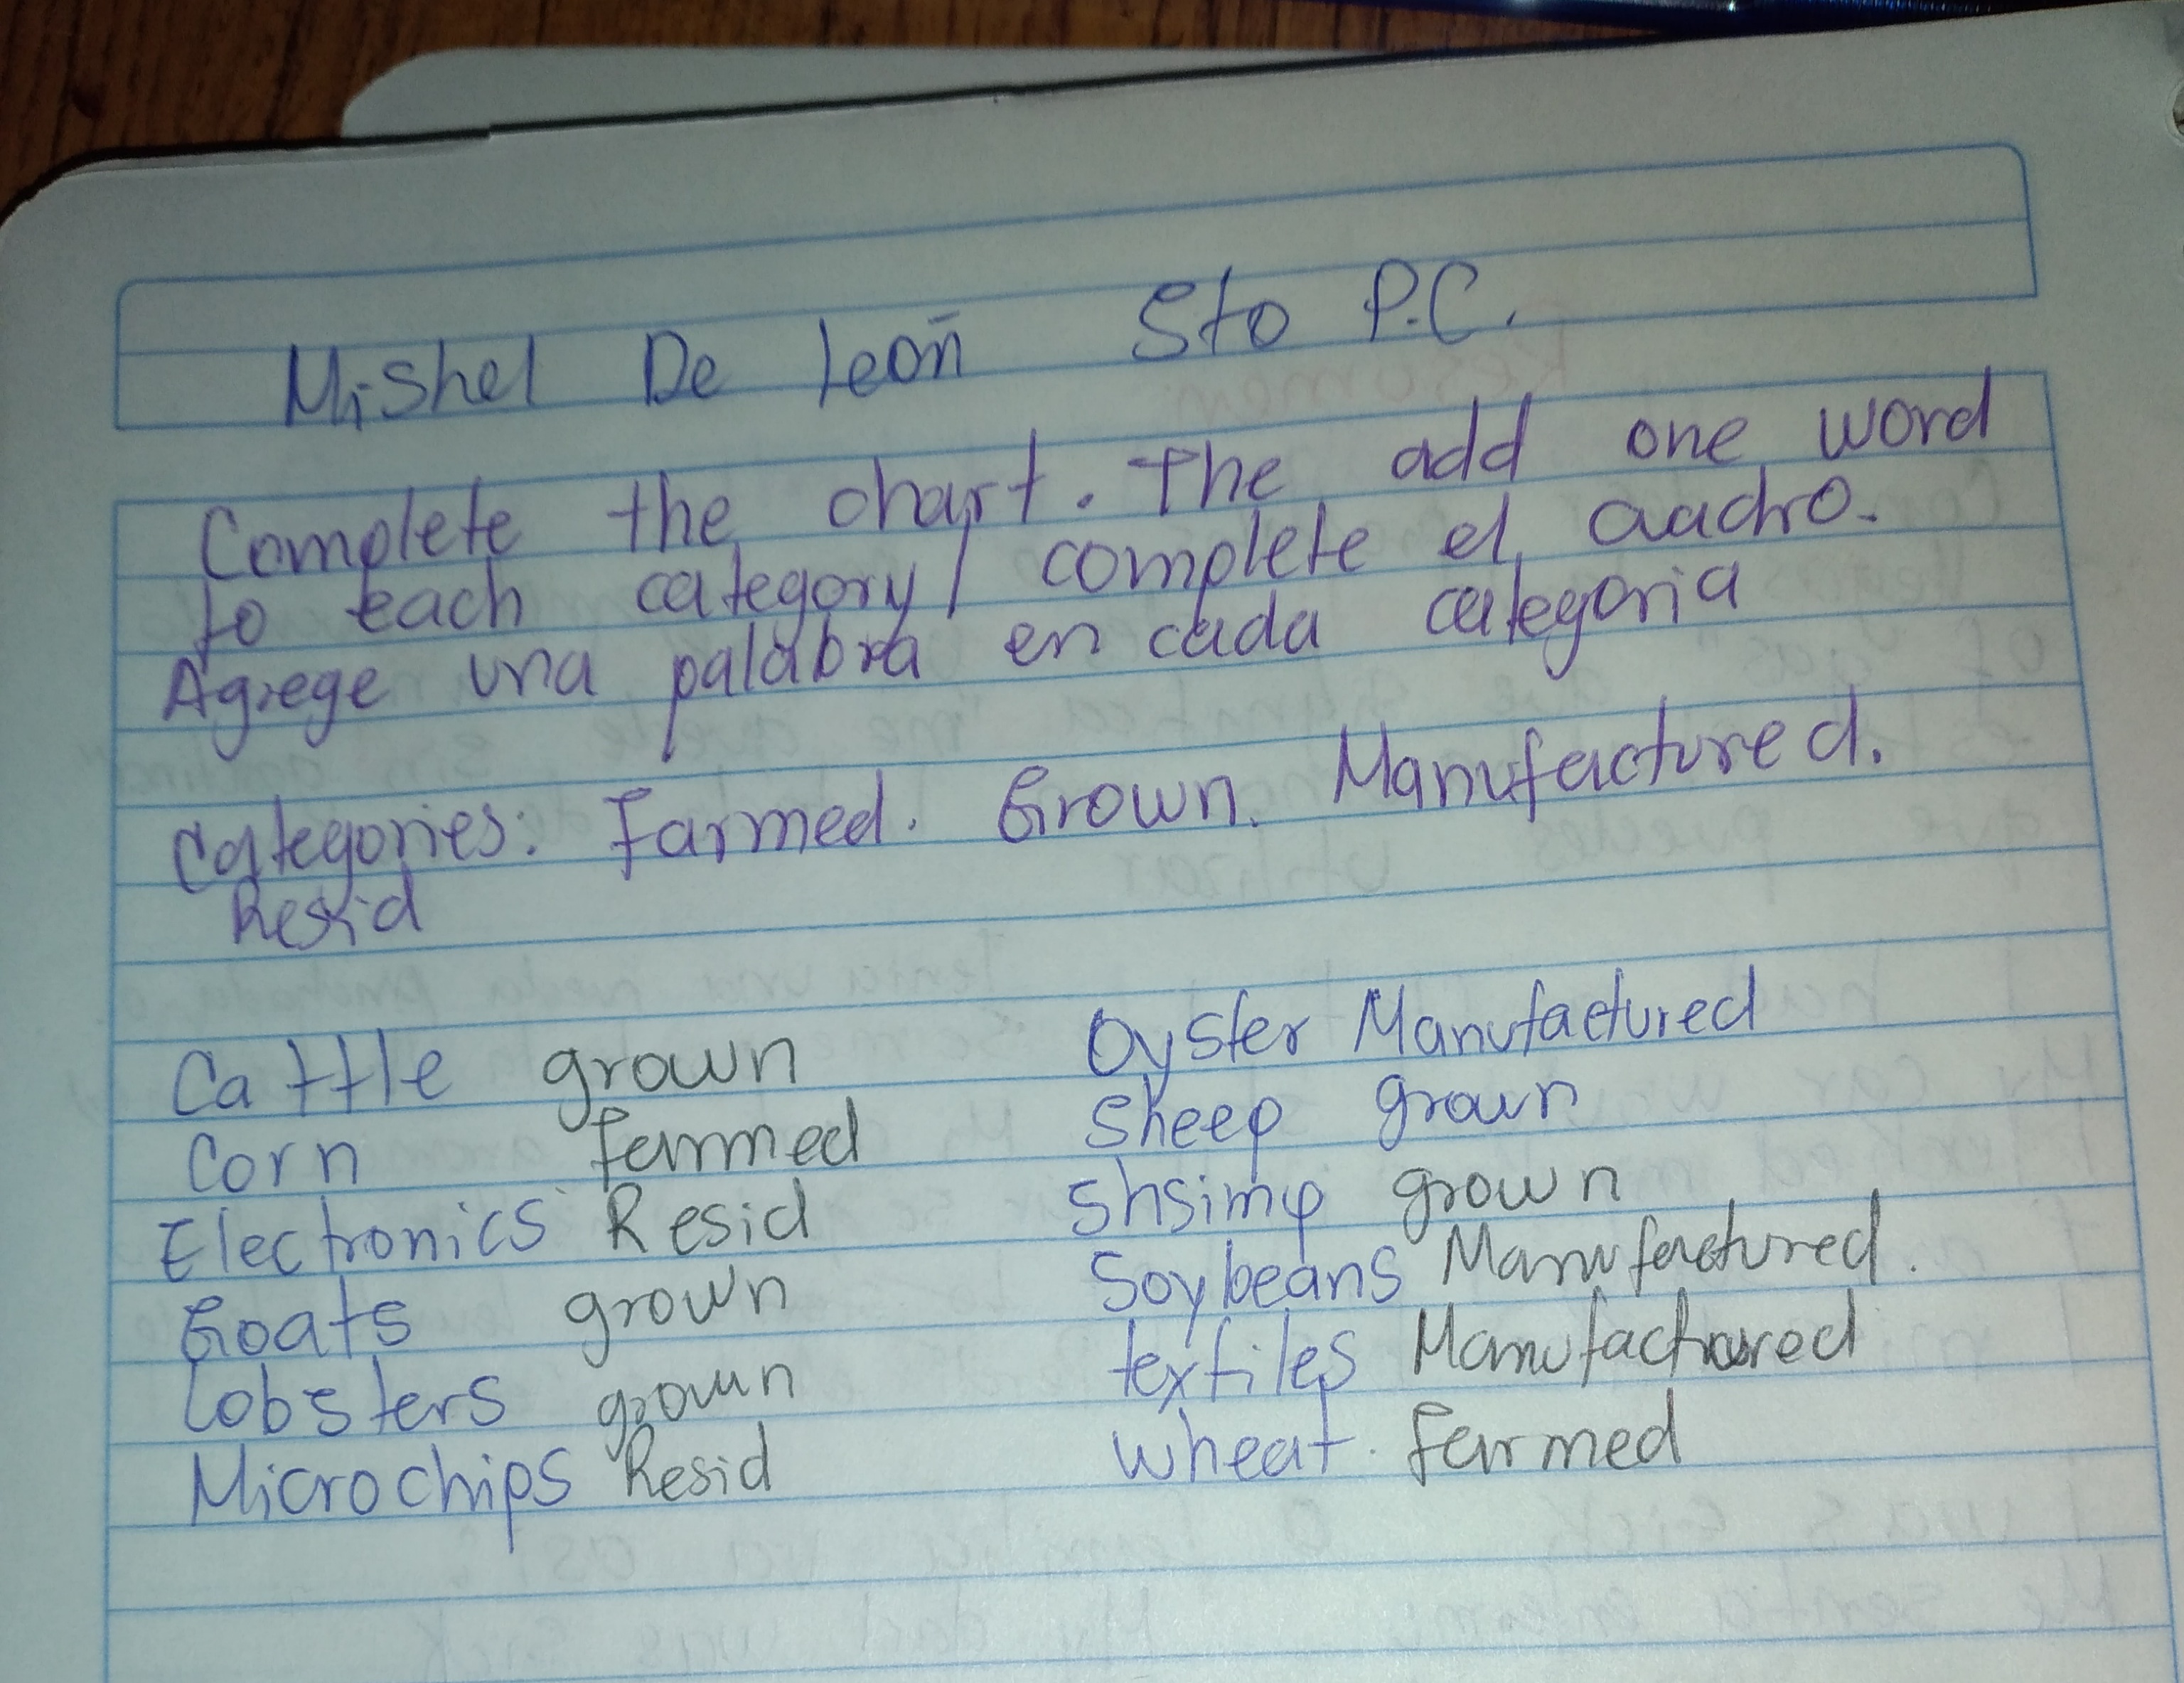 Mishel De león 5to P.C.
Complete the chart. The add one word
to each category/ complete el cuadro.
Agrege una palabra en cada categoria
Categories: Farmed. Grown. Manufactured.
Resid
Cattle grown
Corn farmed
Electronics Resid
Goats grown
Lobsters grown
Microchips Resid
Oyster Manufactured
Sheep grown
Shsimp grown
Soybeans Manufactured.
textiles Manufactured
wheat. farmed